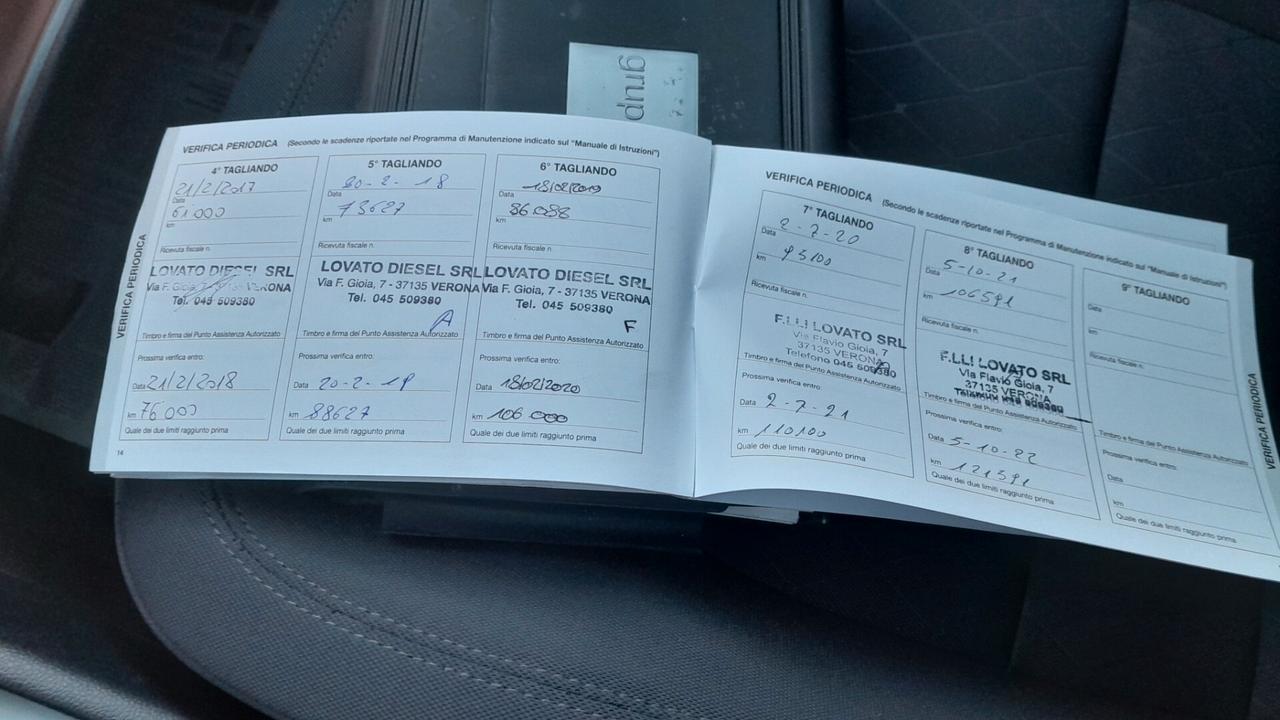 grup
VERIFICA PERIODICA (Secondo le scadenze riportate nel Programma di Manutenzione indicato sul "Manuale di Istruzioni")
VERIFICA PERIODICA
4° TAGLIANDO
21/2/2017
Data
61000
km
Ricevuta fiscale n.
LOVATO DIESEL SRL
Via F. Gioia, 7 - 37135 VERONA
Tel. 045 509380
Timbro e firma del Punto Assistenza Autorizzato
Prossima verifica entro:
Data 21/2/2018
km 76000
Quale dei due limiti raggiunto prima
14
5° TAGLIANDO
20-2-18
Data
73627
km
Ricevuta fiscale n.
LOVATO DIESEL SRL
Via F. Gioia, 7 - 37135 VERONA
Tel. 045 509380
Timbro e firma del Punto Assistenza Autorizzato
Prossima verifica entro:
Data 20-2-19
km 88627
Quale dei due limiti raggiunto prima
6° TAGLIANDO
18/02/2019
Data
86088
km
Ricevuta fiscale n.
LOVATO DIESEL SRL
Via F. Gioia, 7 - 37135 VERONA
Tel. 045 509380
F
Timbro e firma del Punto Assistenza Autorizzato
Prossima verifica entro:
Data 18/02/2020
km 106000
Quale dei due limiti raggiunto prima
VERIFICA PERIODICA (Secondo le scadenze riportate nel Programma di Manutenzione indicato sul "Manuale di Istruzioni")
7° TAGLIANDO
2-7-20
Data
95100
km
Ricevuta fiscale n.
F.LLI LOVATO SRL
Via Flavio Gioia, 7
37135 VERONA
Telefono 045 509380
Timbro e firma del Punto Assistenza Autorizzato
Prossima verifica entro:
Data 2-7-21
km 110100
Quale dei due limiti raggiunto prima
8° TAGLIANDO
5-10-21
Data
106591
km
Ricevuta fiscale n.
F.LLI LOVATO SRL
Via Flavio Gioia, 7
37135 VERONA
Timbro e firma del Punto Assistenza Autorizzato
Prossima verifica entro:
Data 5-10-22
km 121591
Quale dei due limiti raggiunto prima
9° TAGLIANDO
Data
km
Ricevuta fiscale n.
Timbro e firma del Punto Assistenza Autorizzato
Prossima verifica entro:
Data
km
Quale dei due limiti raggiunto prima
VERIFICA PERIODICA